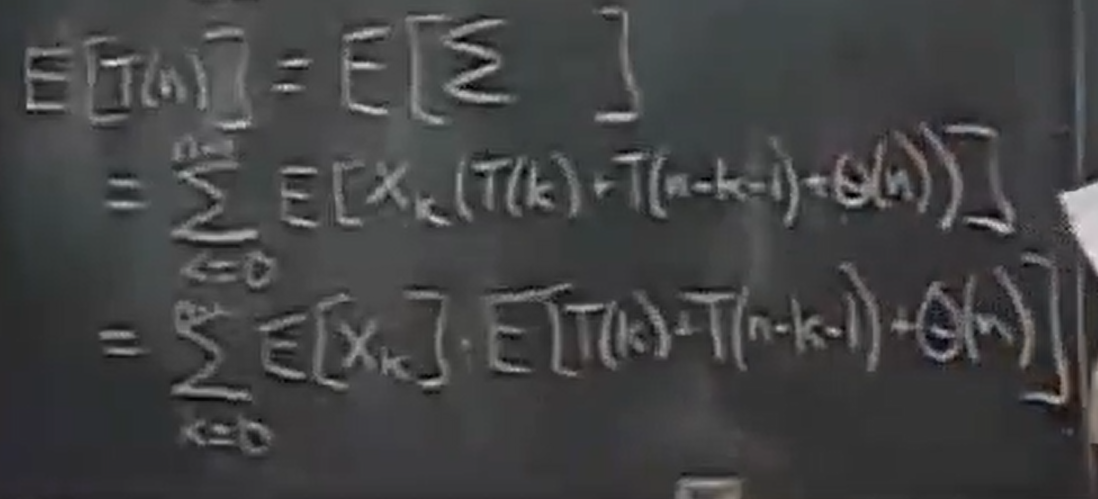 E[T(n)] = E[Σ ]
= Σ k=0 E[X_k(T(k)+T(n-k-1)+Θ(n))]
= Σ k=0 E[X_k]·E[T(k)+T(n-k-1)+Θ(n)]